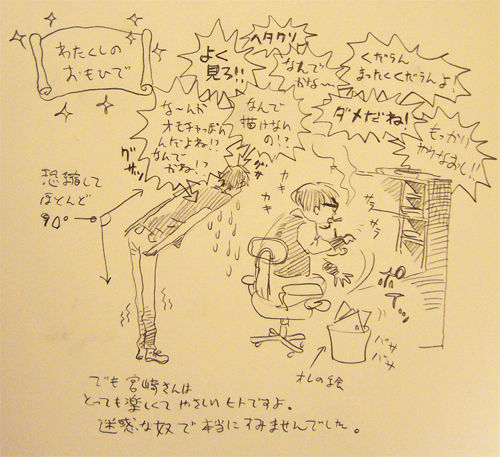 わたくしの
おもひで
ヘタクソ
よく
見ろ!!
なんで
かな〜
くだらん
まったくくだらんよ!
な〜んか
オモチャっぽい
んだよね!?
なんで
かね!?
なんで
描けない
の!?
ダメだね!
もっかい
やりなおし!!
グサッ
グサ
恐縮して
ほとんど
90°
カキ
カキ
サラ
サラ
ポイッ
バサ
バサ
オレの絵
でも宮崎さんは
とっても楽しくてやさしいヒトですよ。
迷惑な奴で本当にすみませんでした。